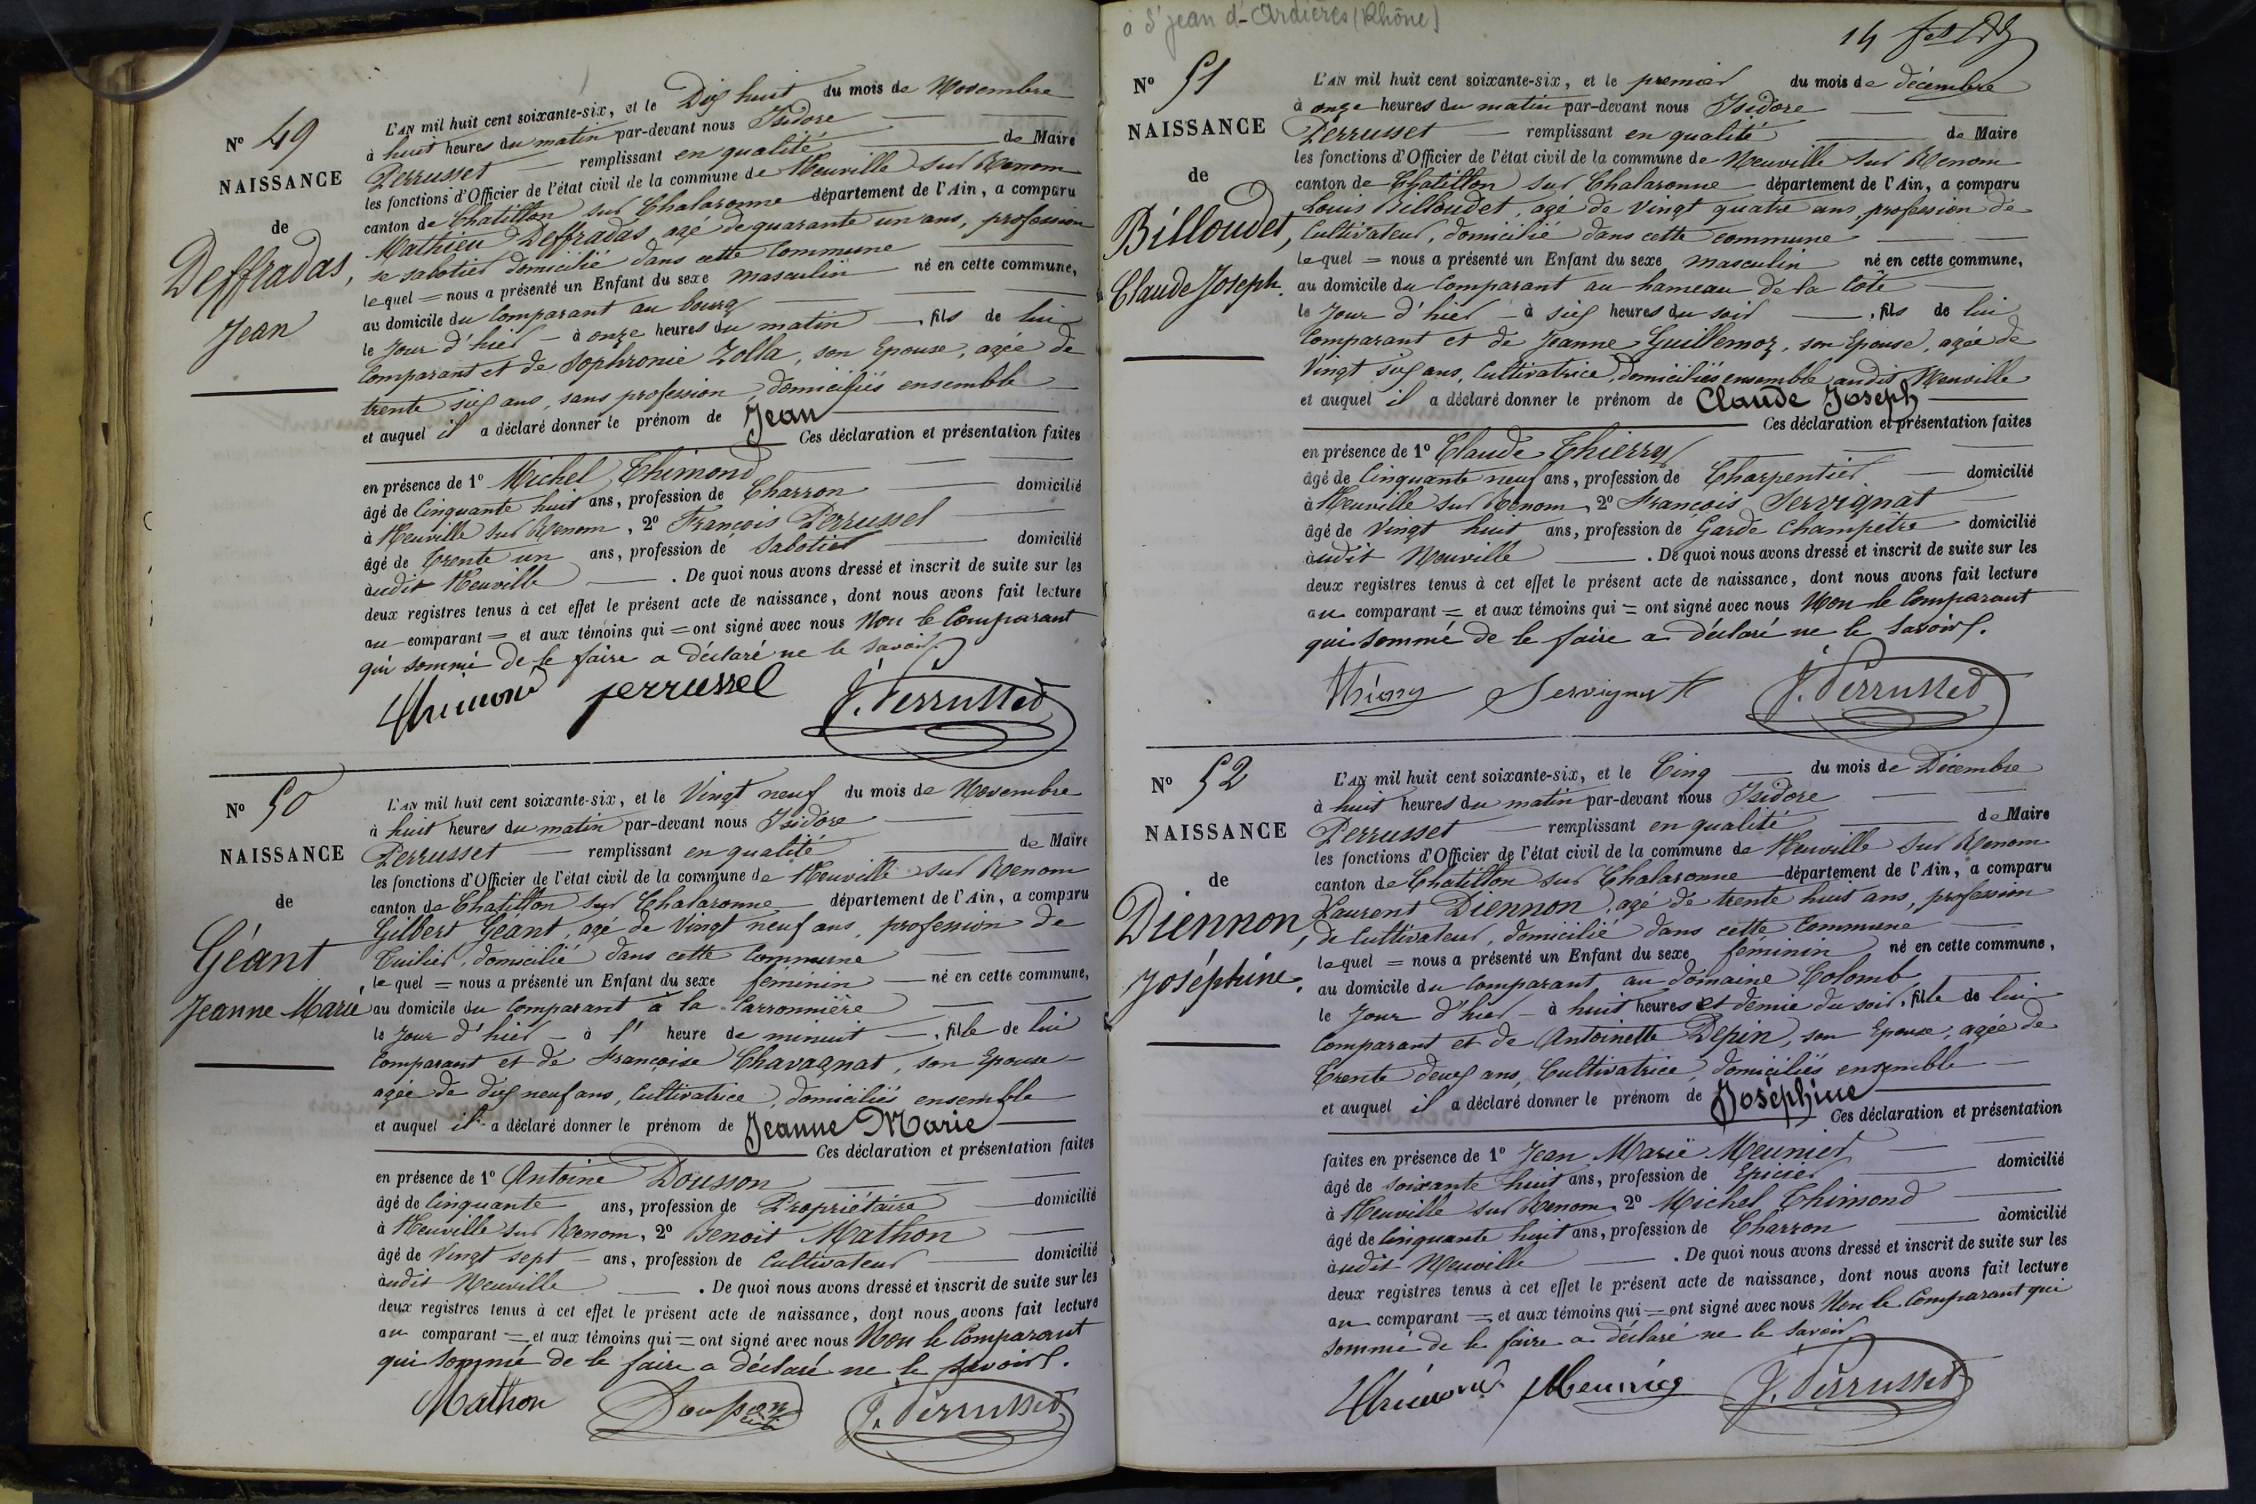 N° 49
NAISSANCE
de
Deffradas,
Jean
L'AN mil huit cent soixante-six, et le Dix huit du mois de Novembre
à huit heures du matin par-devant nous Isidore
Perrusset remplissant en qualité de Maire
les fonctions d'Officier de l'état civil de la commune de Neuville sur Renom
canton de Chatillon sur Chalaronne département de l'Ain, a comparu
Mathieu Deffradas, agé de quarante un ans, profession
de sabotier domicilié dans cette Commune
lequel = nous a présenté un Enfant du sexe masculin né en cette commune,
au domicile du Comparant au bourg
le Jour d'hier à onze heures du matin, fils de lui
Comparant et de Sophronie Zolla, son Epouse, agée de
trente six ans, sans profession, domiciliés ensemble
et auquel il a déclaré donner le prénom de Jean
Ces déclaration et présentation faites
en présence de 1° Michel Thimond
âgé de Cinquante huit ans, profession de Charron domicilié
à Neuville sur Renom, 2° François Perrussel
âgé de Trente un ans, profession de Sabotier domicilié
audit Neuville. De quoi nous avons dressé et inscrit de suite sur les
deux registres tenus à cet effet le présent acte de naissance, dont nous avons fait lecture
au comparant = et aux témoins qui = ont signé avec nous Non le Comparant
qui sommé de le faire a déclaré ne le savoir.
Thimond perrussel J. Perrusset
N° 50
NAISSANCE
de
Géant
Jeanne Marie
L'AN mil huit cent soixante-six, et le Vingt neuf du mois de Novembre
à huit heures du matin par-devant nous Isidore
Perrusset remplissant en qualité de Maire
les fonctions d'Officier de l'état civil de la commune de Neuville sur Renom
canton de Chatillon sur Chalaronne département de l'Ain, a comparu
Gilbert Géant, agé de Vingt neuf ans, profession de
Tuilier, domicilié dans cette Commune
lequel = nous a présenté un Enfant du sexe féminin né en cette commune,
au domicile du Comparant à la Carronnière
le Jour d'hier à l' heure de minuit, fille de lui
Comparant et de Françoise Chavagnat, son Epouse
agée de dix neuf ans, Cultivatrice, domiciliés ensemble
et auquel il a déclaré donner le prénom de Jeanne Marie
Ces déclaration et présentation faites
en présence de 1° Antoine Dousson
âgé de Cinquante ans, profession de Propriétaire domicilié
à Neuville sur Renom, 2° Benoit Mathon
âgé de Vingt sept ans, profession de Cultivateur domicilié
audit Neuville. De quoi nous avons dressé et inscrit de suite sur les
deux registres tenus à cet effet le présent acte de naissance, dont nous avons fait lecture
au comparant = et aux témoins qui = ont signé avec nous Non le Comparant
qui sommé de le faire a déclaré ne le savoir.
Mathon Dousson J. Perrusset
à St jean d'Ardières (Rhône)
14
N° 51
NAISSANCE
de
Billoudet,
Claude Joseph.
L'AN mil huit cent soixante-six, et le premier du mois de décembre
à onze heures du matin par-devant nous Isidore
Perrusset remplissant en qualité de Maire
les fonctions d'Officier de l'état civil de la commune de Neuville sur Renom
canton de Chatillon sur Chalaronne département de l'Ain, a comparu
Louis Billoudet, agé de Vingt quatre ans, profession de
Cultivateur, domicilié dans cette commune
lequel = nous a présenté un Enfant du sexe masculin né en cette commune,
au domicile du Comparant au hameau de la Côte
le Jour d'hier à six heures du soir, fils de lui
Comparant et de Jeanne Guillemoz, son Epouse, agée de
Vingt six ans, Cultivatrice, domiciliés ensemble audit Neuville
et auquel il a déclaré donner le prénom de Claude Joseph
Ces déclaration et présentation faites
en présence de 1° Claude Thierry
âgé de Cinquante neuf ans, profession de Charpentier domicilié
à Neuville sur Renom, 2° François Servignat
âgé de Vingt huit ans, profession de Garde Champêtre domicilié
audit Neuville. De quoi nous avons dressé et inscrit de suite sur les
deux registres tenus à cet effet le présent acte de naissance, dont nous avons fait lecture
au comparant = et aux témoins qui = ont signé avec nous Non le Comparant
qui sommé de le faire a déclaré ne le savoir.
Thiery Servignat J. Perrusset
N° 52
NAISSANCE
de
Diennon,
Joséphine.
L'AN mil huit cent soixante-six, et le Cinq du mois de Décembre
à huit heures du matin par-devant nous Isidore
Perrusset remplissant en qualité de Maire
les fonctions d'Officier de l'état civil de la commune de Neuville sur Renom
canton de Chatillon sur Chalaronne département de l'Ain, a comparu
Laurent Diennon, agé de trente huit ans, profession
de Cultivateur, domicilié dans cette Commune
lequel = nous a présenté un Enfant du sexe féminin né en cette commune,
au domicile du Comparant au domaine Colomb
le Jour d'hier à huit heures et demie du soir, fille de lui
Comparant et de Antoinette Pepin, son Epouse, agée de
Trente deux ans, Cultivatrice, domiciliés ensemble
et auquel il a déclaré donner le prénom de Joséphine
Ces déclaration et présentation
faites en présence de 1° Jean Marie Meunier
âgé de soixante huit ans, profession de Epicier domicilié
à Neuville sur Renom, 2° Michel Thimond
âgé de Cinquante huit ans, profession de Charron domicilié
audit Neuville. De quoi nous avons dressé et inscrit de suite sur les
deux registres tenus à cet effet le présent acte de naissance, dont nous avons fait lecture
au comparant = et aux témoins qui = ont signé avec nous Non le Comparant qui
sommé de le faire a déclaré ne le savoir
Thimond Meunier J. Perrusset